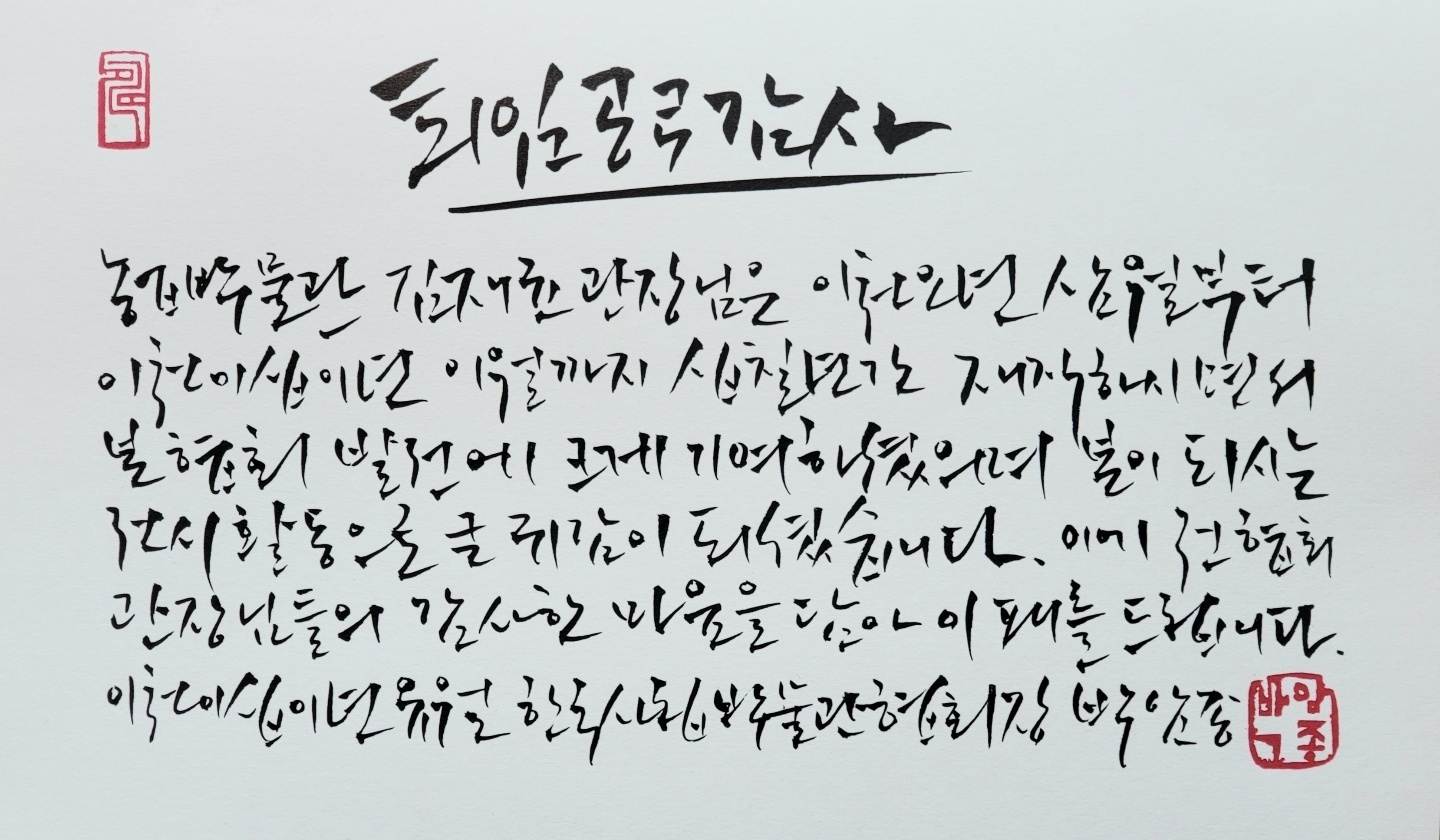 퇴임공로감사
농업박물관 김재균 관장님은 이천오년 삼월부터
이천이십이년 이월까지 십칠년간 재직하시면서
본협회 발전에 크게 기여하셨으며 본이 되시는
전시활동으로 큰 귀감이 되셨습니다. 이에 전협회
관장님들의 감사한 마음을 담아 이 패를 드립니다.
이천이십이년유월 한국사립박물관협회장 박암종
박암종